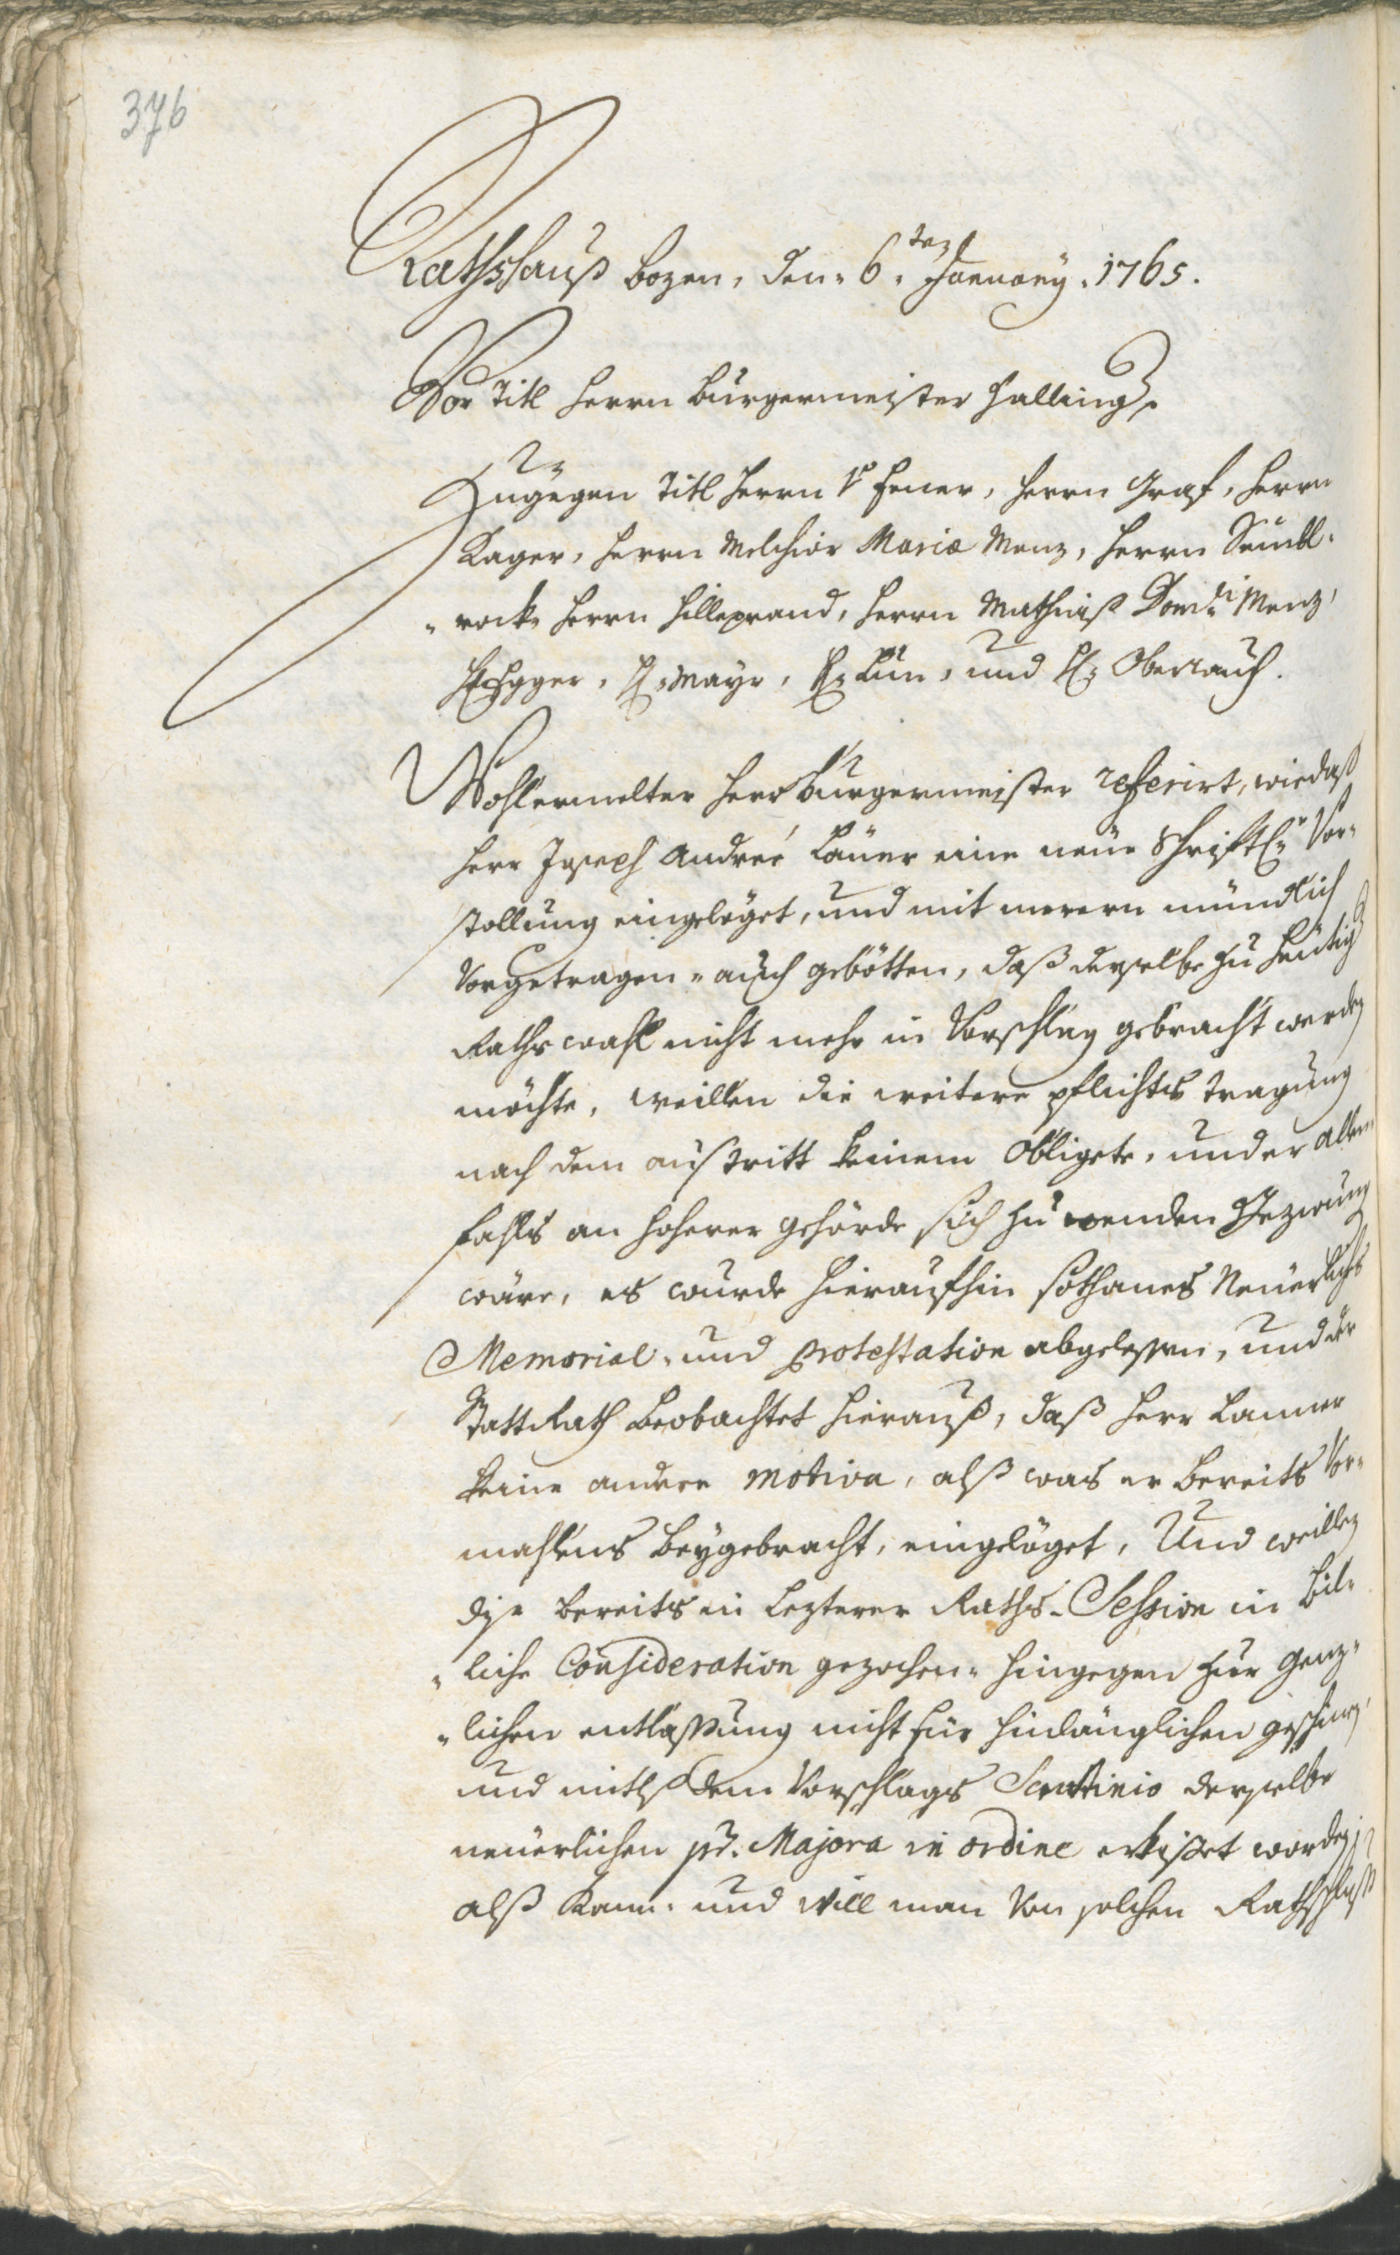 376
Rathshauß Bozen, den 6ten January 1765.
Vor Titl Herrn Burgermeister Halling.
Zugegen Titl Herrn v Hener, Herrn Graf, Herrn
Kager, Herrn Melchior Maria Menz, Herrn
rock, Herrn Hilleprand, Herrn Mathiaß Domci Menz,
H: Egger, H: Mayr, H: Lün, und H: Oberrauch.
Wohlermelter Herr Burgermeister referirt, wiedaß
Herr Joseph Andreé Laner eine neue Schriftl: Vor-
stellung eingeleget, und mit merern mündlich
Vorgetragen auch gebötten, daß derselbe zu heutig
Rathswahl nicht mehr in Vorschlag gebracht werden
möchte, weillen die weitere pflichts tragung
nach dem austritt keinem Obligete, und er allen-
fahls an hoherer gehörde sich zu wenden gezwung
wäre, es wurde hieraufhin sothanes Neuerliche
Memorial und Protestation abgelesen, und der
StattRath beobachtet hierauß, daß Herr Lanner
keine andere motiva, alß was er bereits Vor-
mahlens beygebracht, eingeleget, Und weillen
dise bereits in lezterer Raths-Session in bil-
liche Consideration gezochen, hingegen zur genz-
lichen entlassung nicht für hinlänglichen geschinen,
und mitls dem Vorschlags Scrutinio derselbe
neuerlichen pr. Majora in ordine erkiset worden;
alß kann und will man Von solchen Rathschluß